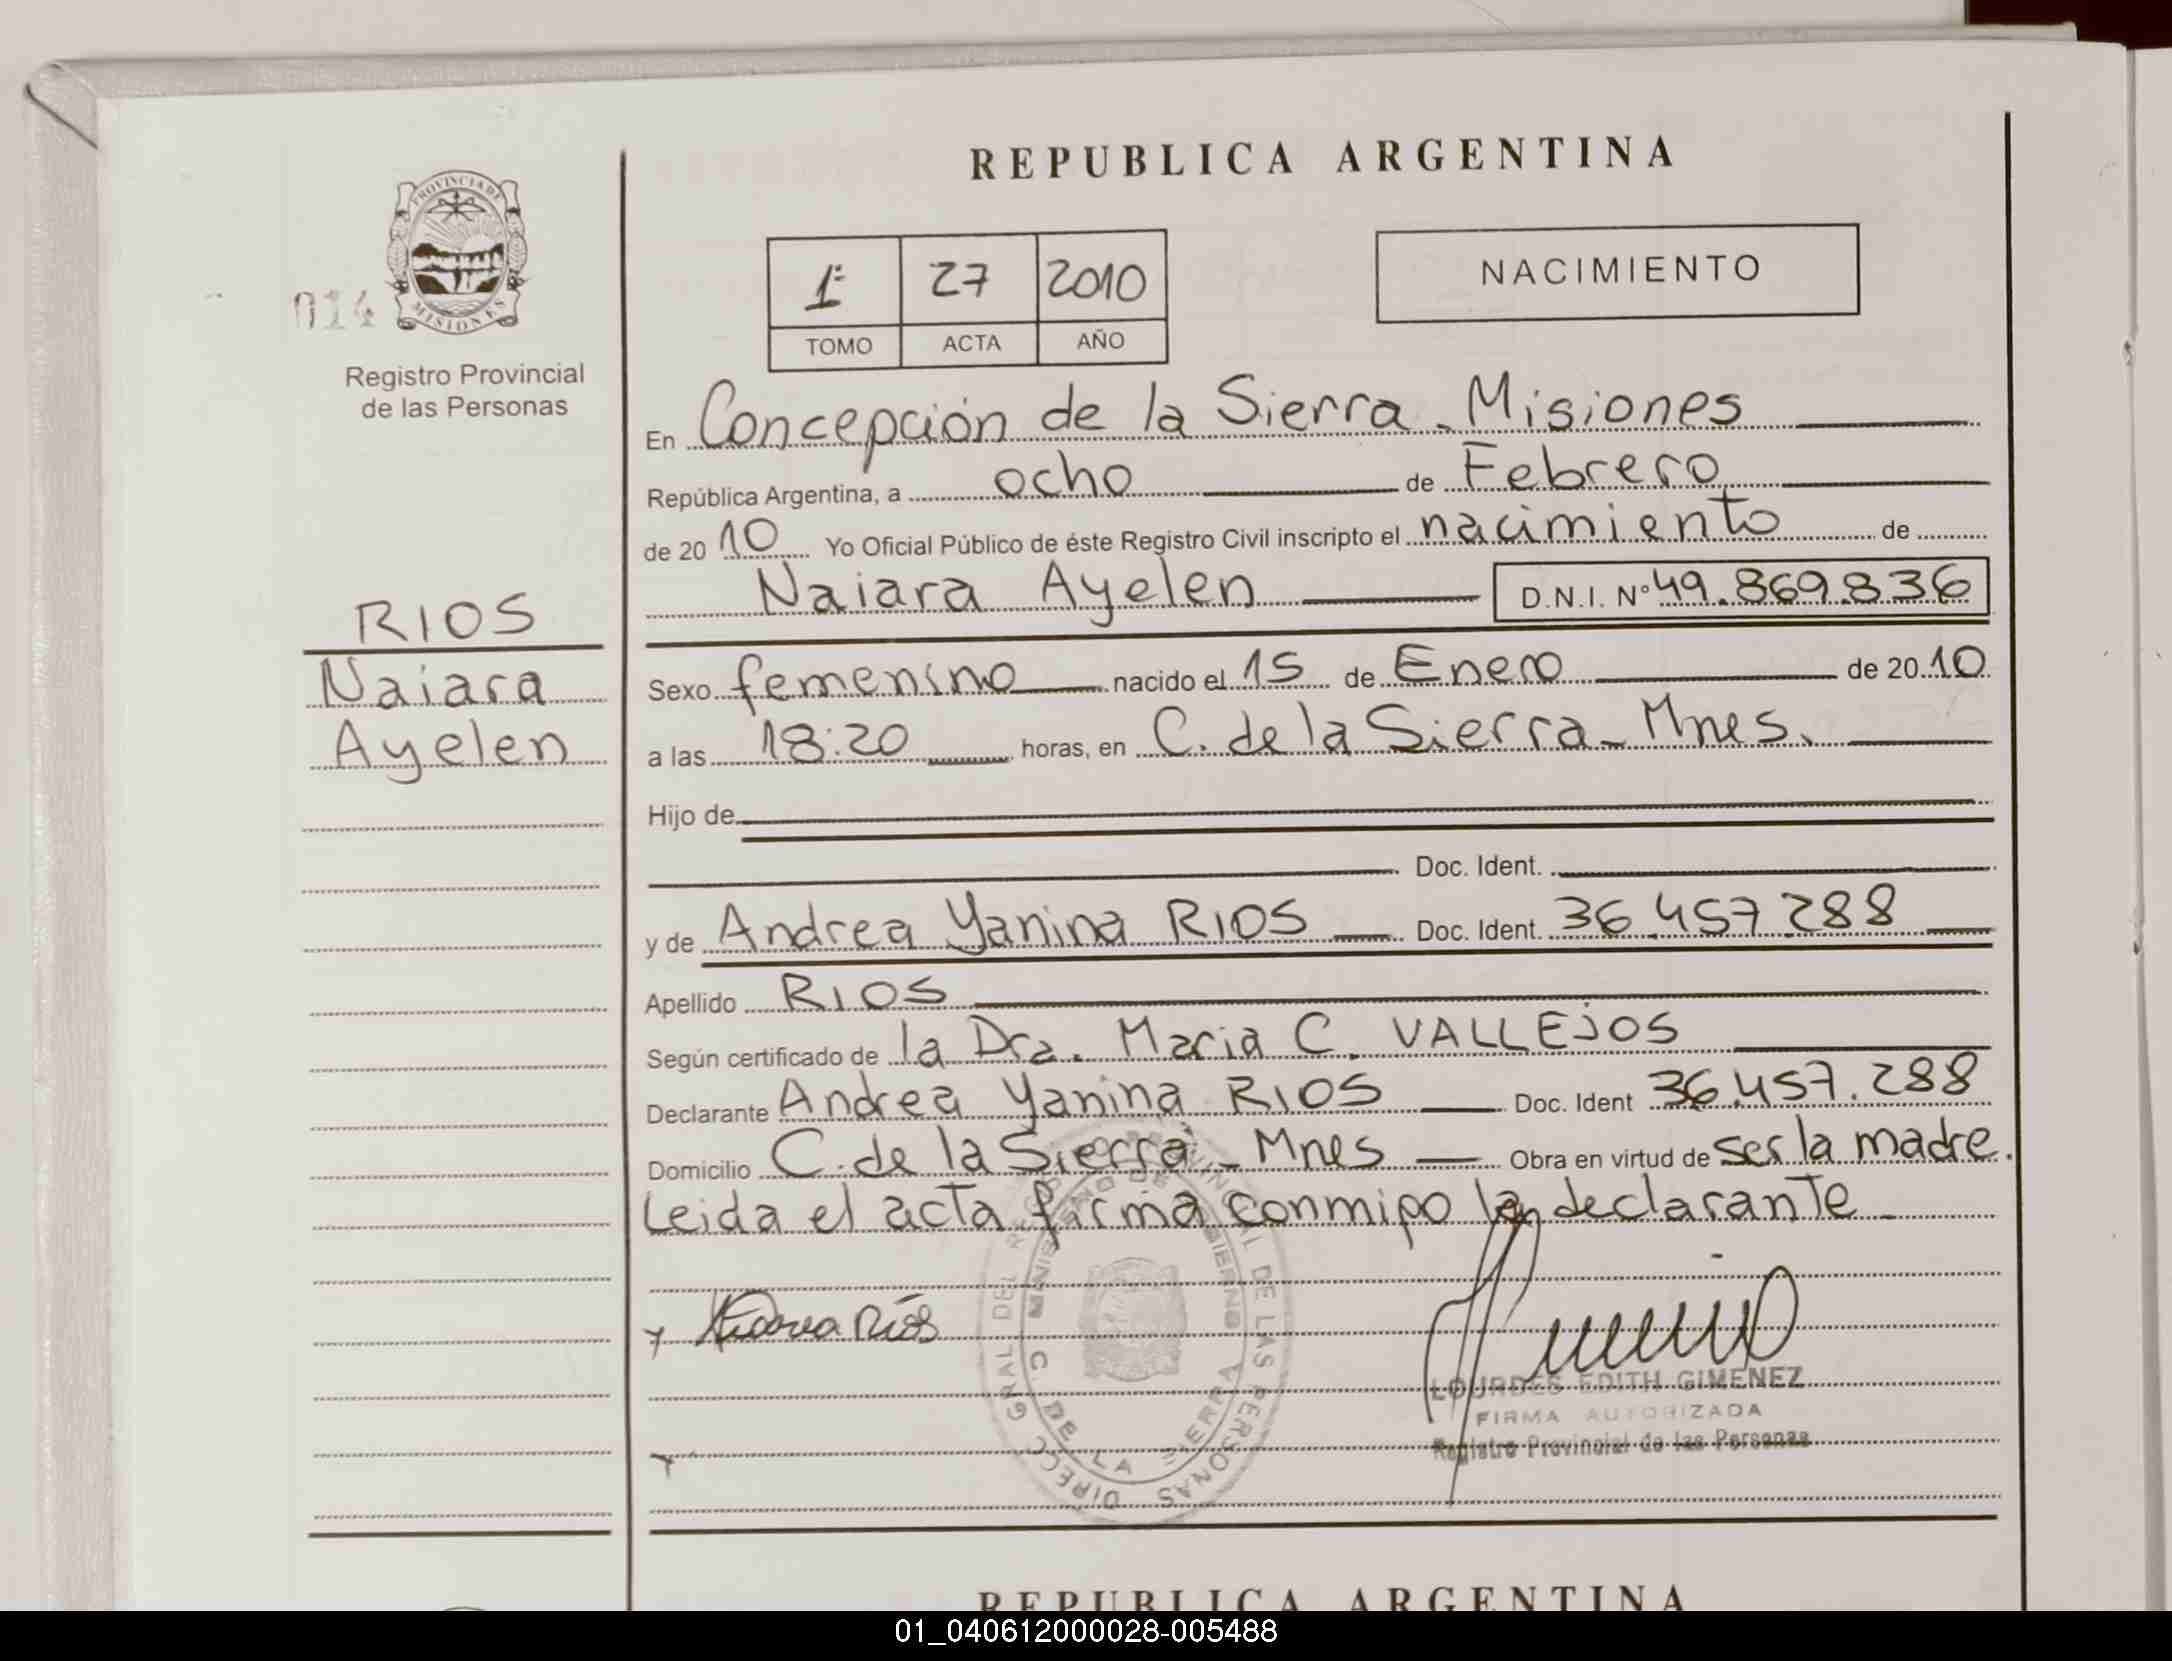 REPUBLICA ARGENTINA
PROVINCIA DE
MISIONES
014
Registro Provincial
de las Personas
1º 27 2010
TOMO ACTA AÑO
NACIMIENTO
En Concepción de la Sierra - Misiones
República Argentina, a ocho de Febrero
de 2010 Yo Oficial Público de éste Registro Civil inscripto el nacimiento de
Naiara Ayelen D.N.I. Nº 49.869.836
RIOS
Naiara
Ayelen
Sexo femenino nacido el 15 de Enero de 2010
a las 18:20 horas, en C. de la Sierra - Mnes.
Hijo de
Doc. Ident.
y de Andrea Yanina RIOS Doc. Ident. 36.457.288
Apellido RIOS
Según certificado de la Dra. Maria C. VALLEJOS
Declarante Andrea Yanina RIOS Doc. Ident 36.457.288
Domicilio C. de la Sierra - Mnes Obra en virtud de ser la madre.
Leida el acta firma conmigo la declarante -
Rios
DIRECC GRAL DEL REG PROVINCIAL DE LAS PERSONAS
MINISTERIO DE GOBIERNO
C. DE LA SIERRA
LOURDES EDITH GIMENEZ
FIRMA AUTORIZADA
Registro Provincial de las Personas
REPUBLICA ARGENTINA
01_040612000028-005488